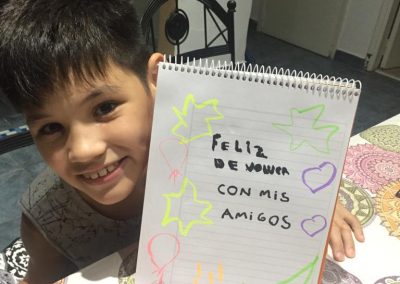 FELIZ
DE VOLVER
CON MIS
AMIGOS